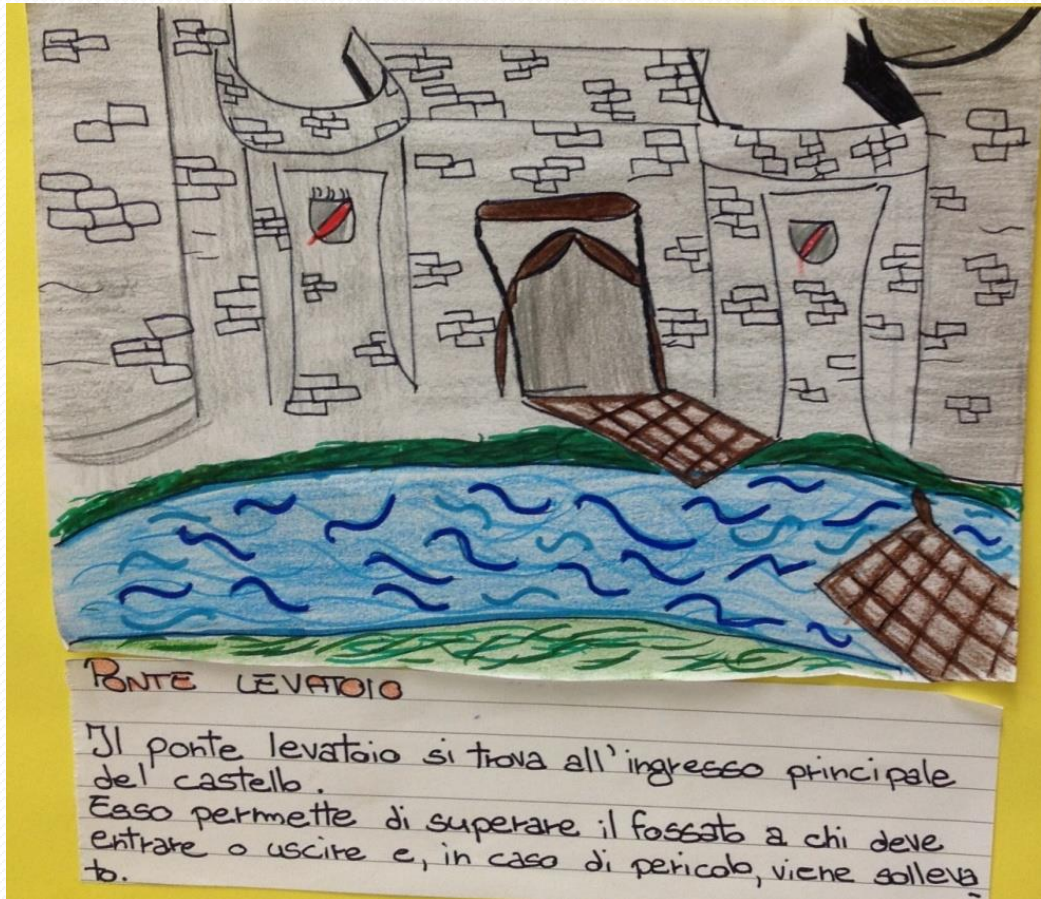 PONTE LEVATOIO
Il ponte levatoio si trova all'ingresso principale
del castello.
Esso permette di superare il fossato a chi deve
entrare o uscire e, in caso di pericolo, viene solleva-
to.